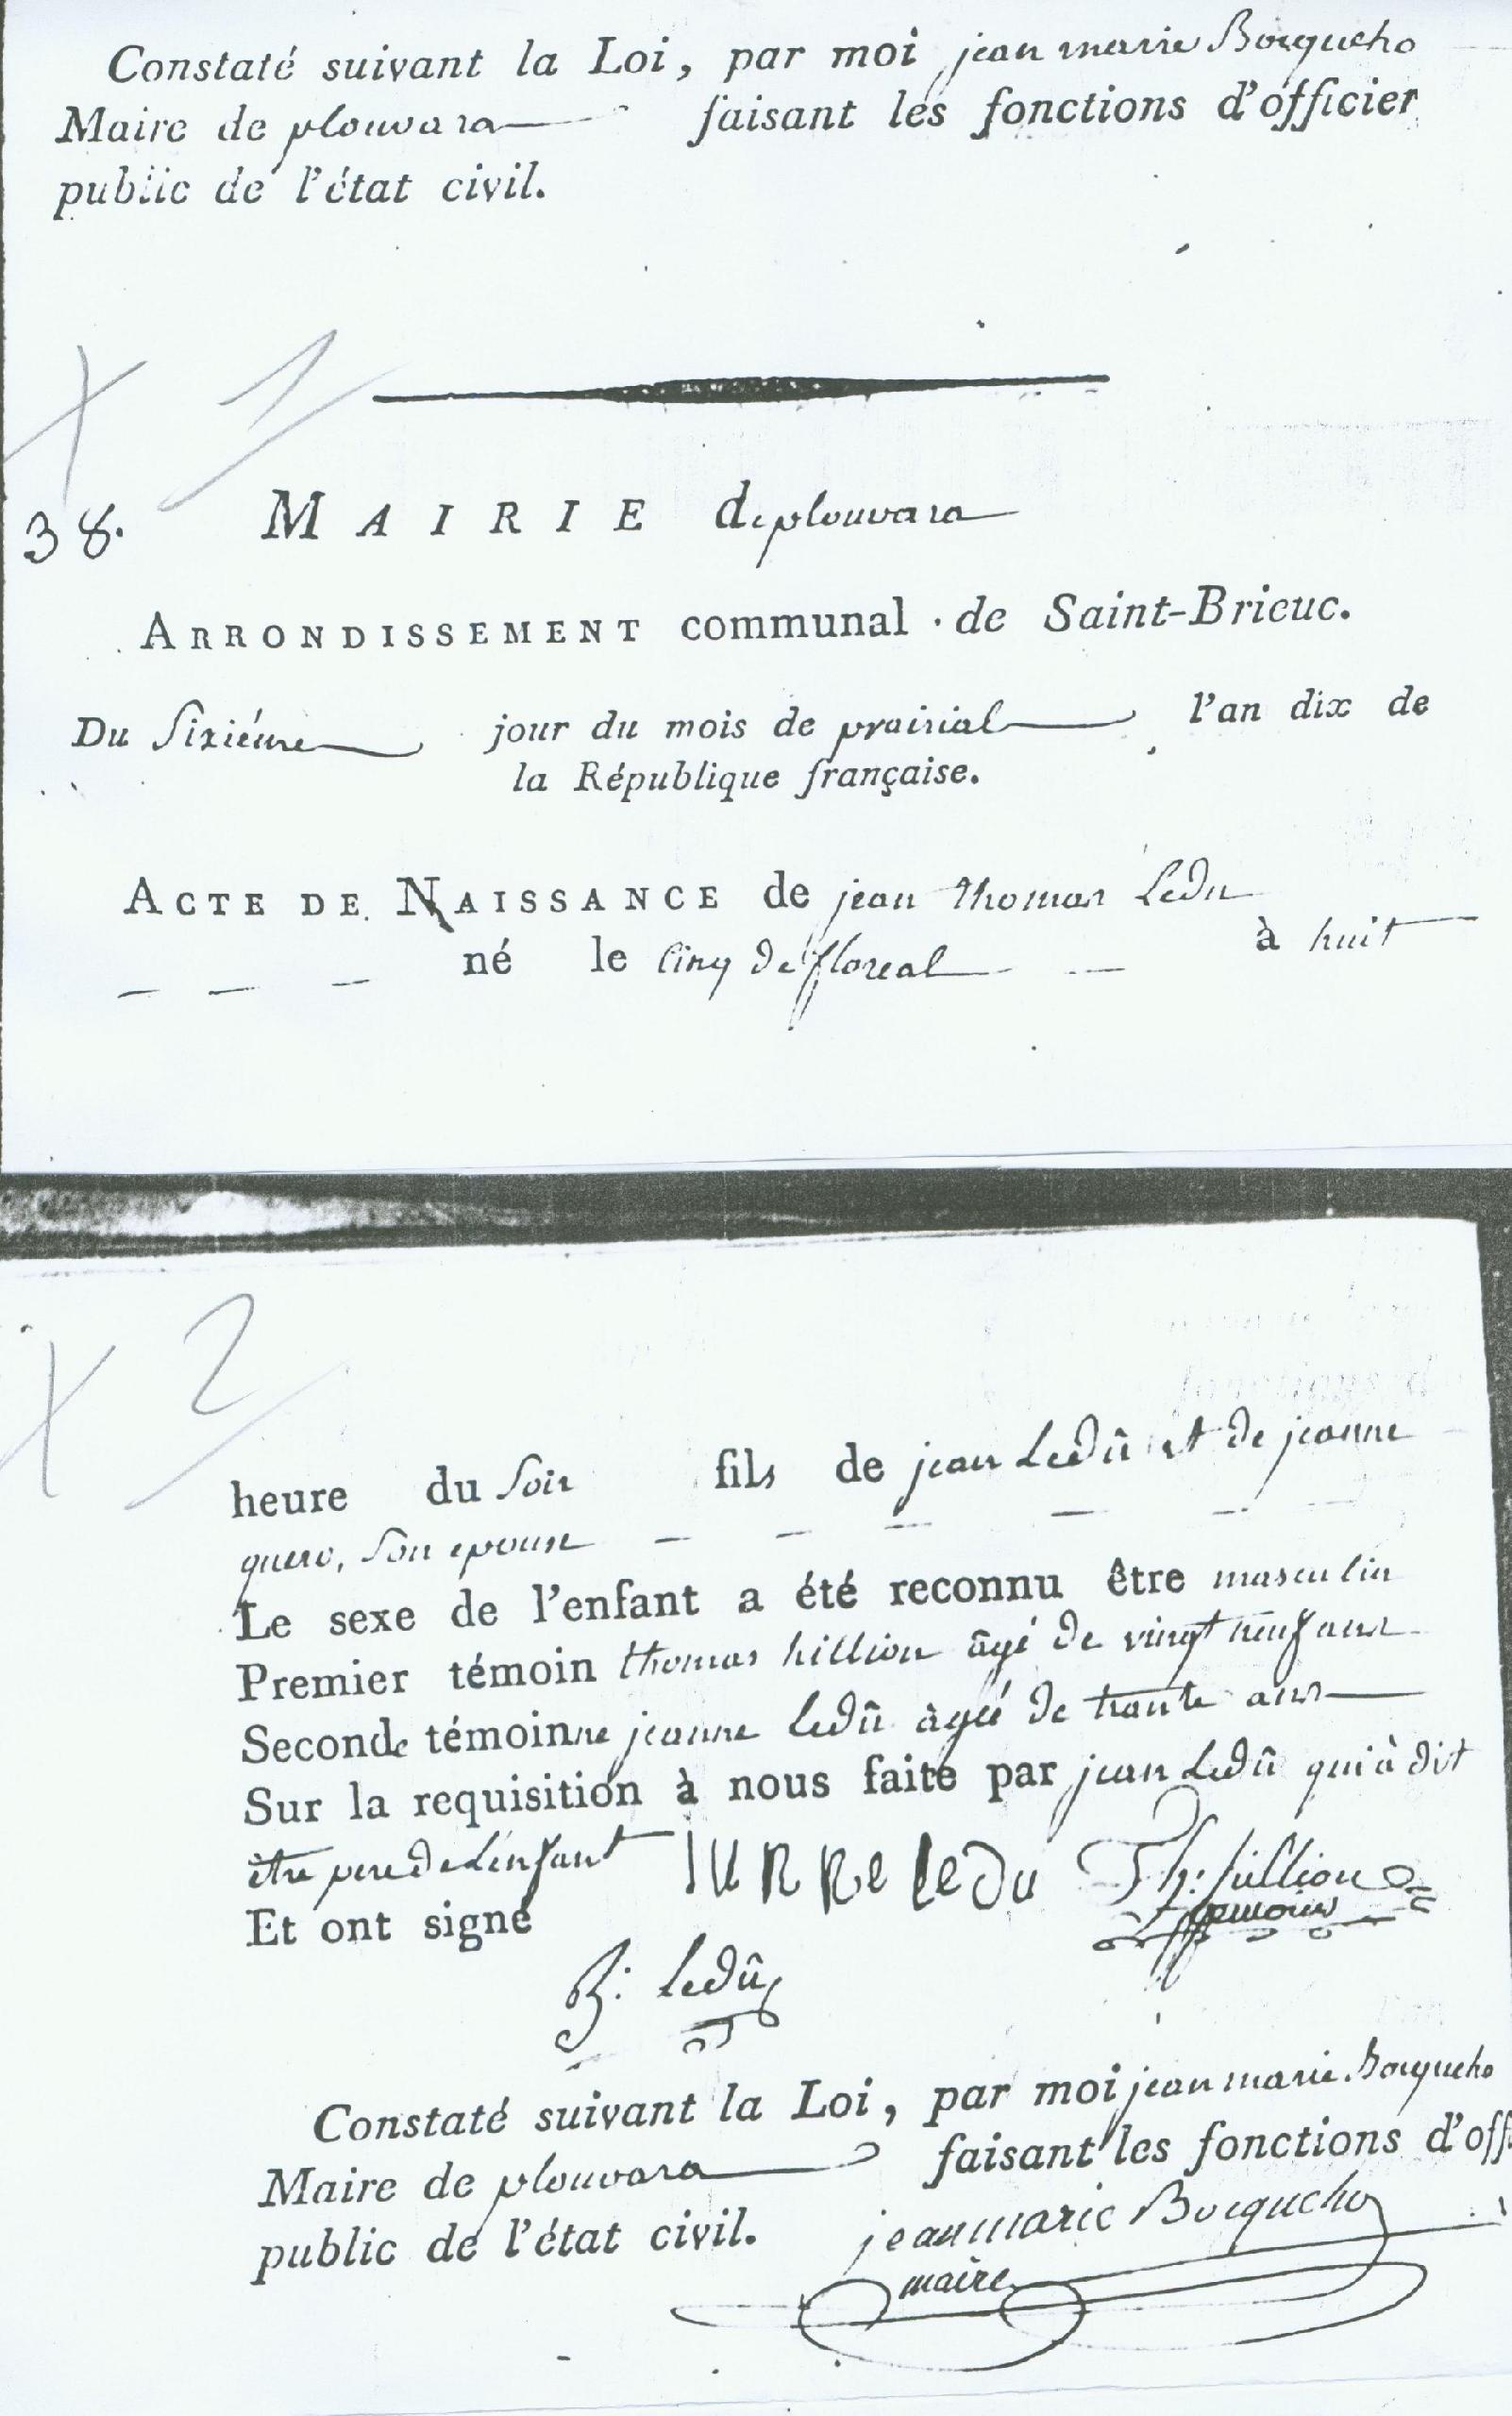 Constaté suivant la Loi, par moi jean marie Borqueho
Maire de plouvara faisant les fonctions d'officier
public de l'état civil.
X 1
38. MAIRIE de plouvara
ARRONDISSEMENT communal de Saint-Brieuc.
Du Sixiéme jour du mois de prairial l'an dix de
la République française.
ACTE DE NAISSANCE de jean thomas Ledu
né le Cinq de floreal à huit
X 2
heure du Soir fils de jean Ledû et de jeanne
quero, Son epouse
Le sexe de l'enfant a été reconnu être masculin
Premier témoin thomas hillion âgé de vingt neuf ans
Seconde témoinne jeanne Ledû agée de trante ans
Sur la requisition à nous faite par jean Ledû qui à dit
être pere de Lenfant Ledu Th: hillion
Et ont signé temoins
Ledû
Constaté suivant la Loi, par moi jean marie Borqueho
Maire de plouvara faisant les fonctions d'off
public de l'état civil. jean marie Borqueho
maire